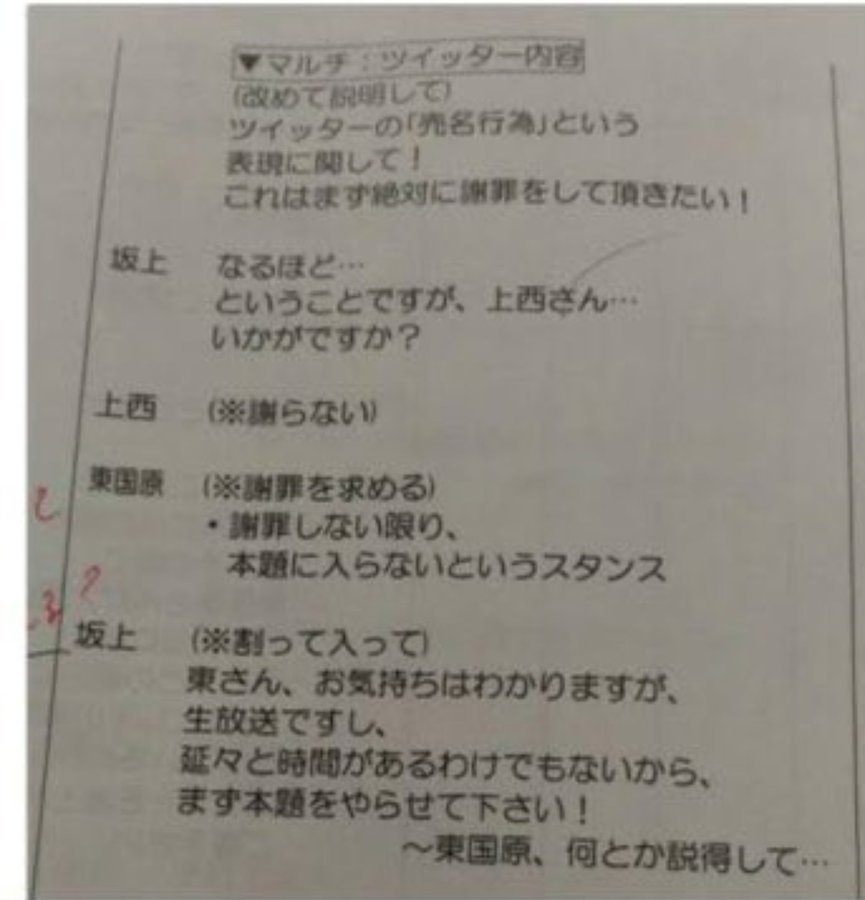 ▼マルチ：ツイッター内容
(改めて説明して)
ツイッターの「売名行為」という
表現に関して！
これはまず絶対に謝罪をして頂きたい！
坂上　なるほど…
ということですが、上西さん…
いかがですか？
上西　(※謝らない)
東国原　(※謝罪を求める)
・謝罪しない限り、
本題に入らないというスタンス
坂上　(※割って入って)
東さん、お気持ちはわかりますが、
生放送ですし、
延々と時間があるわけでもないから、
まず本題をやらせて下さい！
～東国原、何とか説得して…